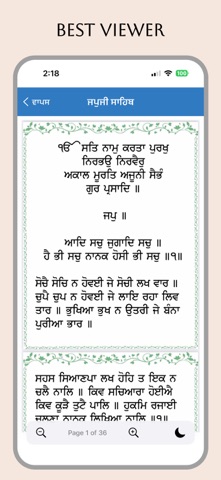 BEST VIEWER
2:18
100
ਵਾਪਸ
ਜਪੁਜੀ ਸਾਹਿਬ
ੴ ਸਤਿ ਨਾਮੁ ਕਰਤਾ ਪੁਰਖੁ
ਨਿਰਭਉ ਨਿਰਵੈਰੁ
ਅਕਾਲ ਮੂਰਤਿ ਅਜੂਨੀ ਸੈਭੰ
ਗੁਰ ਪ੍ਰਸਾਦਿ ॥
ਜਪੁ ॥
ਆਦਿ ਸਚੁ ਜੁਗਾਦਿ ਸਚੁ ॥
ਹੈ ਭੀ ਸਚੁ ਨਾਨਕ ਹੋਸੀ ਭੀ ਸਚੁ ॥੧॥
ਸੋਚੈ ਸੋਚਿ ਨ ਹੋਵਈ ਜੇ ਸੋਚੀ ਲਖ ਵਾਰ ॥
ਚੁਪੈ ਚੁਪ ਨ ਹੋਵਈ ਜੇ ਲਾਇ ਰਹਾ ਲਿਵ
ਤਾਰ ॥ ਭੁਖਿਆ ਭੁਖ ਨ ਉਤਰੀ ਜੇ ਬੰਨਾ
ਪੁਰੀਆ ਭਾਰ ॥
ਸਹਸ ਸਿਆਣਪਾ ਲਖ ਹੋਹਿ ਤ ਇਕ ਨ
ਚਲੈ ਨਾਲਿ ॥ ਕਿਵ ਸਚਿਆਰਾ ਹੋਈਐ
ਕਿਵ ਕੂੜੈ ਤੁਟੈ ਪਾਲਿ ॥ ਹੁਕਮਿ ਰਜਾਈ
ਚਲਣਾ ਨਾਨਕ ਲਿਖਿਆ ਨਾਲਿ ॥੧॥
Page 1 of 36